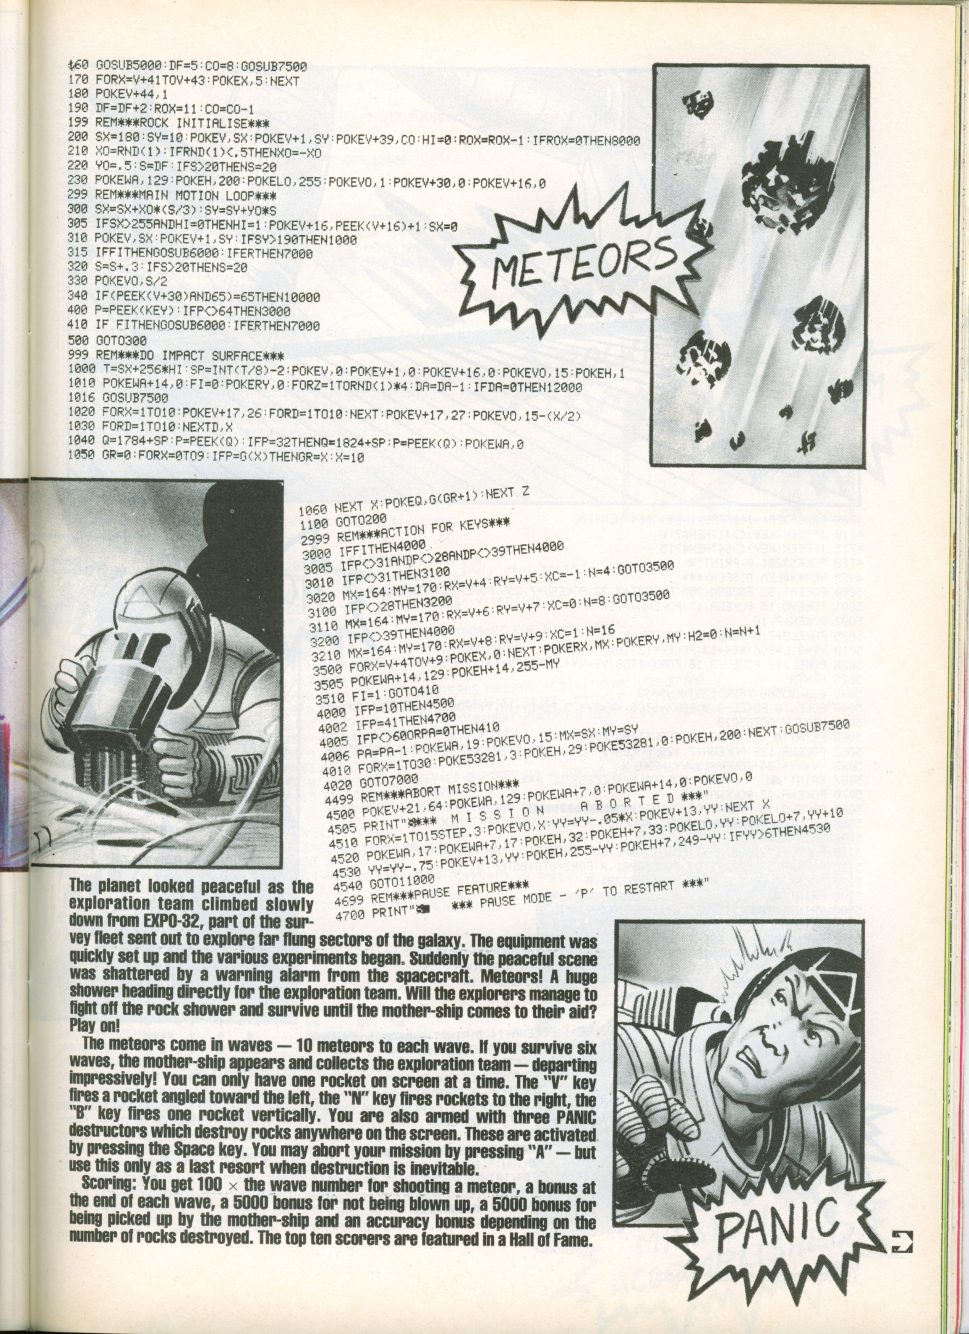 160 GOSUB5000:DF=5:CO=8:GOSUB7500
170 FORX=V+41TOV+43:POKEX,5:NEXT
180 POKEV+44,1
190 DF=DF+2:ROX=11:CO=CO-1
199 REM***ROCK INITIALISE***
200 SX=180:SY=10:POKEV,SX:POKEV+1,SY:POKEV+39,CO:HI=0:ROX=ROX-1:IFROX=0THEN8000
210 XO=RND(1):IFRND(1)<.5THENXO=-XO
220 YO=.5:S=DF:IFS>20THENS=20
230 POKEWA,129:POKEH,200:POKELO,255:POKEVO,1:POKEV+30,0:POKEV+16,0
299 REM***MAIN MOTION LOOP***
300 SX=SX+XO*(S/3):SY=SY+YO*S
305 IFSX>255ANDHI=0THENHI=1:POKEV+16,PEEK(V+16)+1:SX=0
310 POKEV,SX:POKEV+1,SY:IFSY>190THEN1000
315 IFFITHENGOSUB6000:IFERTHEN7000
320 S=S+.3:IFS>20THENS=20
330 POKEVO,S/2
340 IF(PEEK(V+30)AND65)=65THEN10000
400 P=PEEK(KEY):IFP<>64THEN3000
410 IF FITHENGOSUB6000:IFERTHEN7000
500 GOTO300
999 REM***DO IMPACT SURFACE***
1000 T=SX+256*HI:SP=INT(T/8)-2:POKEV,0:POKEV+1,0:POKEV+16,0:POKEVO,15:POKEH,1
1010 POKEWA+14,0:FI=0:POKERY,0:FORZ=1TORND(1)*4:DA=DA-1:IFDA=0THEN12000
1016 GOSUB7500
1020 FORX=1TO10:POKEV+17,26:FORD=1TO10:NEXT:POKEV+17,27:POKEVO,15-(X/2)
1030 FORD=1TO10:NEXTD,X
1040 Q=1784+SP:P=PEEK(Q):IFP=32THENQ=1824+SP:P=PEEK(Q):POKEWA,0
1050 GR=0:FORX=0TO9:IFP=G(X)THENGR=X:X=10
METEORS
1060 NEXT X:POKEQ,G(GR+1):NEXT Z
1100 GOTO200
2999 REM***ACTION FOR KEYS***
3000 IFFITHEN4000
3005 IFP<>31ANDP<>28ANDP<>39THEN4000
3010 IFP<>31THEN3100
3020 MX=164:MY=170:RX=V+4:RY=V+5:XC=-1:N=4:GOTO3500
3100 IFP<>28THEN3200
3110 MX=164:MY=170:RX=V+6:RY=V+7:XC=0:N=8:GOTO3500
3200 IFP<>39THEN4000
3210 MX=164:MY=170:RX=V+8:RY=V+9:XC=1:N=16
3500 FORX=V+4TOV+9:POKEX,0:NEXT:POKERX,MX:POKERY,MY:H2=0:N=N+1
3505 POKEWA+14,129:POKEH+14,255-MY
3510 FI=1:GOTO410
4000 IFP=10THEN4500
4002 IFP=41THEN4700
4005 IFP<>60ORPA=0THEN410
4006 PA=PA-1:POKEWA,19:POKEVO,15:MX=SX:MY=SY
4010 FORX=1TO30:POKE53281,3:POKEH,29:POKE53281,0:POKEH,200:NEXT:GOSUB7500
4020 GOTO7000
4499 REM***ABORT MISSION***
4500 POKEV+21,64:POKEWA,129:POKEWA+7,0:POKEWA+14,0:POKEVO,0
4505 PRINT"*** M I S S I O N   A B O R T E D ***"
4510 FORX=1TO15STEP.3:POKEVO,X:YY=YY-.05*X:POKEV+13,YY:NEXT X
4520 POKEWA,17:POKEWA+7,17:POKEH,32:POKEH+7,33:POKELO,YY:POKELO+7,YY+10
4530 YY=YY-.75:POKEV+13,YY:POKEH,255-YY:POKEH+7,249-YY:IFYY>6THEN4530
4540 GOTO11000
4699 REM***PAUSE FEATURE***
4700 PRINT" *** PAUSE MODE - 'P' TO RESTART ***"
The planet looked peaceful as the
exploration team climbed slowly
down from EXPO-32, part of the sur-
vey fleet sent out to explore far flung sectors of the galaxy. The equipment was
quickly set up and the various experiments began. Suddenly the peaceful scene
was shattered by a warning alarm from the spacecraft. Meteors! A huge
shower heading directly for the exploration team. Will the explorers manage to
fight off the rock shower and survive until the mother-ship comes to their aid?
Play on!
The meteors come in waves — 10 meteors to each wave. If you survive six
waves, the mother-ship appears and collects the exploration team — departing
impressively! You can only have one rocket on screen at a time. The "V" key
fires a rocket angled toward the left, the "N" key fires rockets to the right, the
"B" key fires one rocket vertically. You are also armed with three PANIC
destructors which destroy rocks anywhere on the screen. These are activated
by pressing the Space key. You may abort your mission by pressing "A" — but
use this only as a last resort when destruction is inevitable.
Scoring: You get 100 × the wave number for shooting a meteor, a bonus at
the end of each wave, a 5000 bonus for not being blown up, a 5000 bonus for
being picked up by the mother-ship and an accuracy bonus depending on the
number of rocks destroyed. The top ten scorers are featured in a Hall of Fame.
PANIC